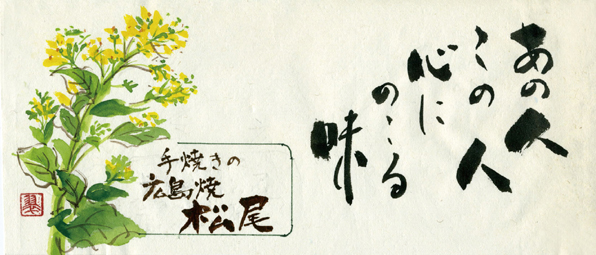 あの人
この人
心に
のこる
味
手焼きの
広島焼
松尾